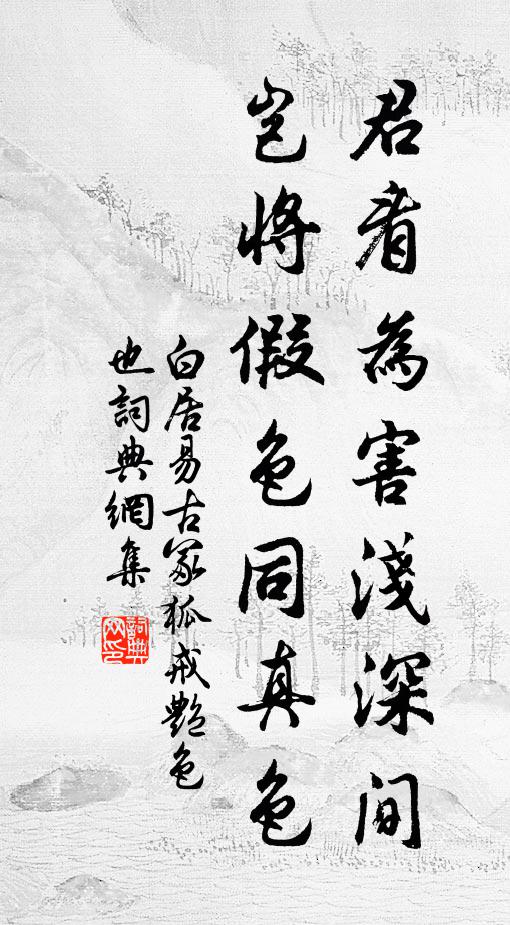 君看為害淺深間
豈將假色同真色
白居易古冢狐戒艷色
也詞典網集
詞典網印